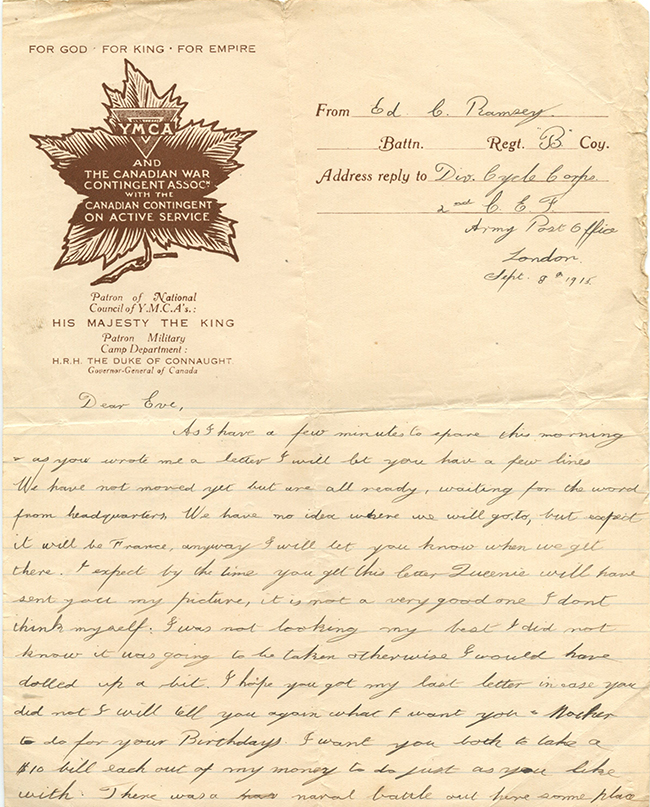 FOR GOD · FOR KING · FOR EMPIRE
YMCA
AND
THE CANADIAN WAR
CONTINGENT ASSOCN
WITH THE
CANADIAN CONTINGENT
ON ACTIVE SERVICE
Patron of National
Council of Y.M.C.A's.:
HIS MAJESTY THE KING
Patron Military
Camp Department:
H.R.H. THE DUKE OF CONNAUGHT
Governor-General of Canada
From Ed. C. Ramsey.
Battn. Regt. "B" Coy.
Address reply to Div. Cycle Corps
2nd C. E. F.
Army Post Office
London.
Sept. 8th 1915.
Dear Eve,
As I have a few minutes to spare this morning
& as you wrote me a letter I will let you hav a few lines
We have not moved yet but are all ready, waiting for the word
from headquarters. We have no idea where we will go to, but expect
it will be France, anyway I will let you know when we get
there. I expect by the time you get this letter Queenie will have
sent you my picture, it is not a very good one I dont
think myself. I was not looking my best I did not
know it was going to be taken otherwise I would have
dolled up a bit. I hope you got my last letter in case you
did not I will tell you again what I want you & Mother
to do for your Birthdays. I want you both to take a
$10 bill each out of my money to do just as you like
with. There was a naval battle out here some place